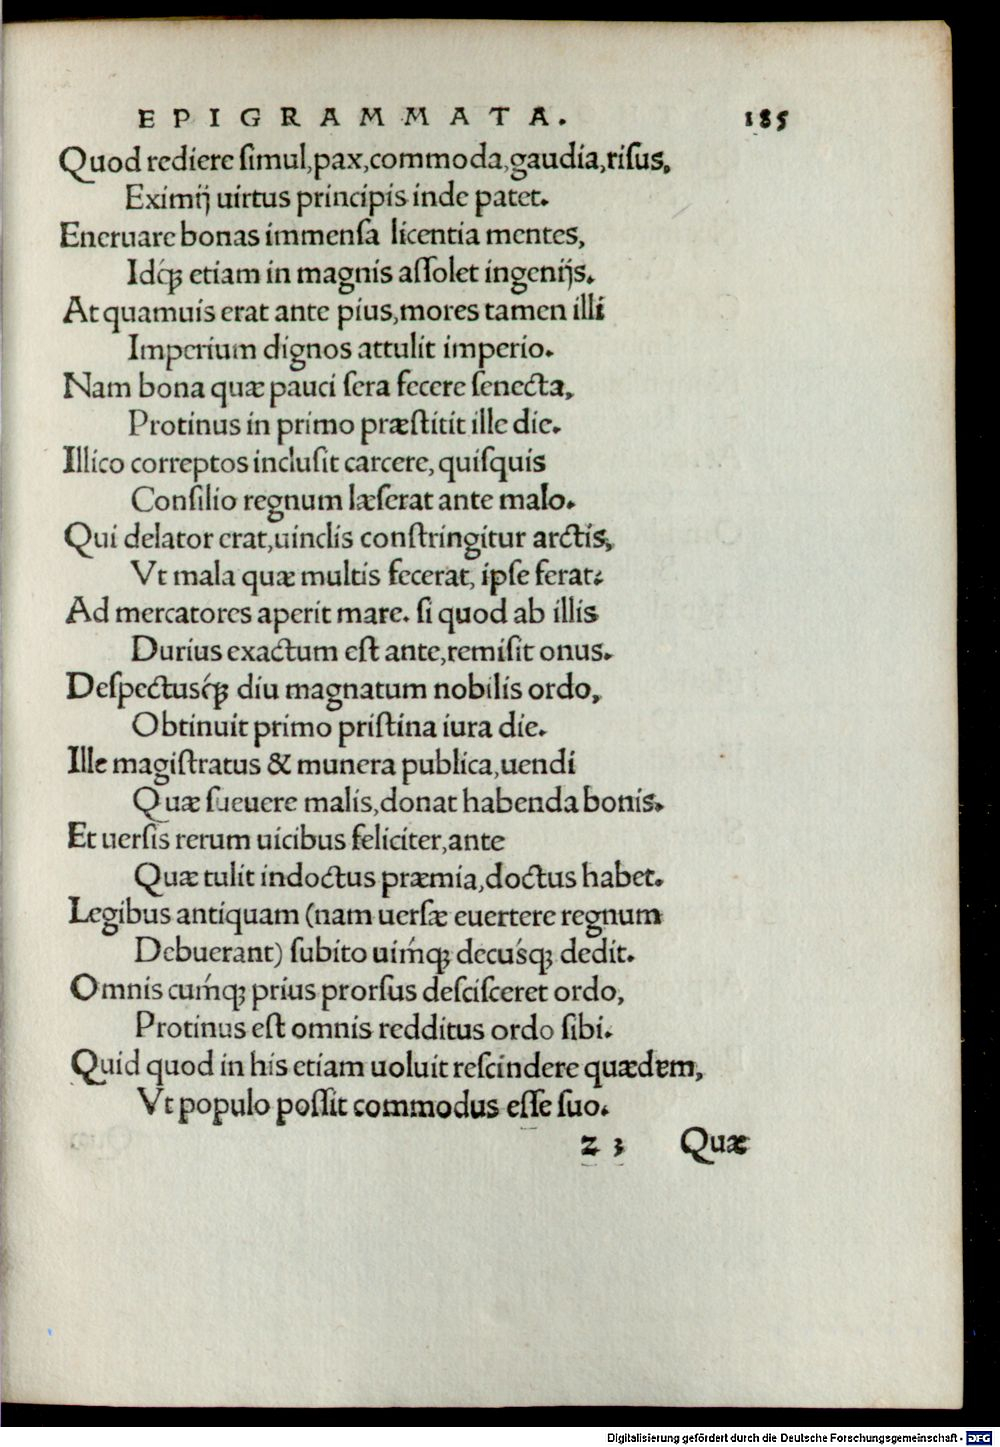 EPIGRAMMATA. 185
Quod rediere ſimul, pax, commoda, gaudia, riſus,
Eximij uirtus principis inde patet.
Eneruare bonas immenſa licentia mentes,
Idq́ꝫ etiam in magnis aſſolet ingenijs.
At quamuis erat ante pius, mores tamen illi
Imperium dignos attulit imperio.
Nam bona quæ pauci ſera fecere ſenecta,
Protinus in primo præſtitit ille die.
Illico correptos incluſit carcere, quiſquis
Conſilio regnum læſerat ante malo.
Qui delator erat, uinclis conſtringitur arctis,
Vt mala quæ multis fecerat, ipſe ferat.
Ad mercatores aperit mare. ſi quod ab illis
Durius exactum eſt ante, remiſit onus.
Deſpectusq́ꝫ diu magnatum nobilis ordo,
Obtinuit primo priſtina iura die.
Ille magiſtratus & munera publica, uendi
Quæ ſueuere malis, donat habenda bonis.
Et uerſis rerum uicibus feliciter, ante
Quæ tulit indoctus præmia, doctus habet.
Legibus antiquam (nam uerſæ euertere regnum
Debuerant) ſubito uiḿqꝫ decuśqꝫ dedit.
Omnis cuḿqꝫ prius prorſus deſciſceret ordo,
Protinus eſt omnis redditus ordo ſibi.
Quid quod in his etiam uoluit reſcindere quædem,
Vt populo poſſit commodus eſſe ſuo.
z 3 Quæ
Digitalisierung gefördert durch die Deutsche Forschungsgemeinschaft - DFG